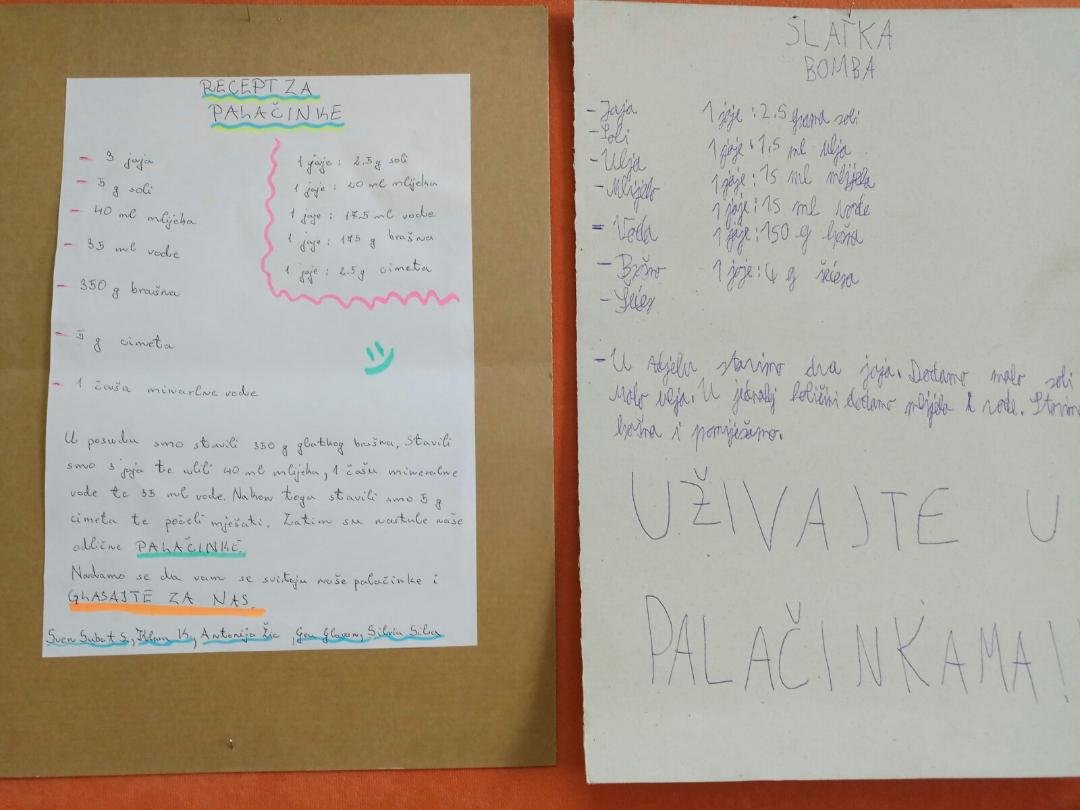 RECEPT ZA
PALAČINKE
- 3 jaja
- 5 g soli
- 40 ml mlijeka
- 35 ml vode
- 350 g brašna
- 5 g cimeta
- 1 čaša minearlne vode
1 jaje : 2.5g soli
1 jaje : 20 ml mlijeka
1 jaje : 17.5 ml vode
1 jaje : 175 g brašna
1 jaje : 2.5g cimeta
U posudu smo stavili 350 g glatkog brašna. Stavili
smo 3 jaja te ulili 40 ml mlijeka, 1 čašu mineralne
vode te 35 ml vode. Nakon toga stavili smo 5 g
cimeta te počeli mješati. Zatim su nastale naše
odlične PALAČINKE.
Nadamo se da vam se sviđaju naše palačinke i
GLASAJTE ZA NAS.
Sven Subat S., K., Antonija Žic, Glavan, Silvia Silva
SLATKA
BOMBA
- Jaja
- Soli
- Ulja
- Mlijeko
- Voda
- Brašno
- Šećer
1 jaje : 2.5 grama soli
1 jaje : 1.5 ml ulja
1 jaje : 15 ml mlijeka
1 jaje : 15 ml vode
1 jaje : 150 g brašna
1 jaje : 4 g šećera
- U zdjelu stavimo dva jaja. Dodamo malo soli
malo ulja. U jednakoj količini dodamo mlijeka i vode. Stavimo
brašna i pomiješamo.
UŽIVAJTE U
PALAČINKAMA!